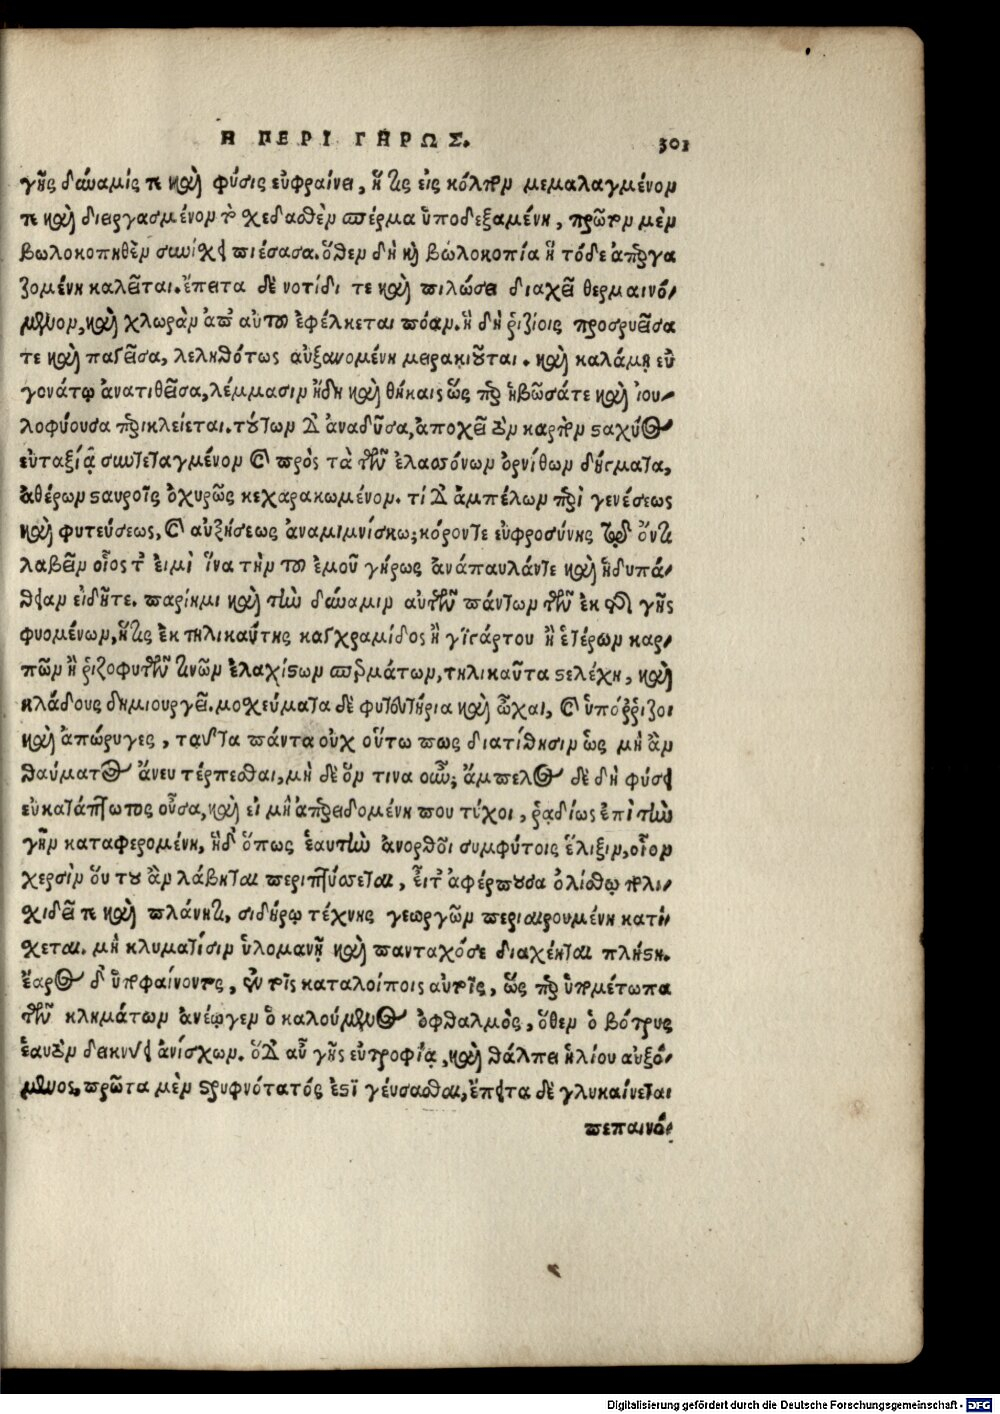 Η ΠΕΡΙ ΓΗΡΩΣ. 301
γῆς δύναμίς τε καὶ φύσις εὐφραίνει, ἥτις εἰς κόλπον μεμαλαγμένον
τε καὶ διεργασμένον τὸ σχεδασθὲν σπέρμα ὑποδεξαμένη, πρῶτον μὲν
βωλοκοπηθὲν συνίσχει πιέσασα. ὅθεν δὴ καὶ βωλοκοπία ἡ τόδε ἀπεργα
ζομένη καλεῖται. ἔπειτα δὲ νοτίδι τε καὶ πιλώσει διαχεῖ θερμαινό-
μενον, καὶ χλωρὰν ἀπ' αὐτοῦ ἐφέλκεται πόαν. ἣ δὴ ῥιζίοις προσφυεῖσα
τε καὶ παγεῖσα, λεληθότως αὐξανομένη μειρακιοῦται. καὶ καλάμῃ εὐ
γονάτῳ ἀνατιθεῖσα, λέμμασιν ἤδη καὶ θήκαις ὥσπερ ἡβῶσάτε καὶ ἰου-
λοφύουσα περικλείεται. τούτων δ' ἀναδῦσα, ἀποχεῖ τὸν καρπὸν στάχυος
εὐταξίᾳ συντεταγμένον καὶ πρὸς τὰ τῶν ἐλασσόνων ὀρνίθων δήγματα,
ἀθέρων σταυροῖς ὀχυρῶς κεχαρακωμένον. τί δ' ἀμπέλων περὶ γενέσεως
καὶ φυτεύσεως, καὶ αὐξήσεως ἀναμιμνήσκω; κόρον τε εὐφροσύνης τῷ ὄντι
λαβεῖν οἷός τ' εἰμὶ ἵνα τὴν τοῦ ἐμοῦ γήρως ἀνάπαυλάν τε καὶ ἡδυπά-
θειαν εἰδῆτε. παρίημι καὶ τὴν δύναμιν αὐτῶν πάντων τῶν ἐκ τῆς γῆς
φυομένων, ἥτις ἐκ τηλικαύτης κεγχραμίδος ἢ γιγάρτου ἢ ἑτέρων καρ-
πῶν ἢ ῥιζοφυτῶν τινῶν ἐλαχίστων σπερμάτων, τηλικαῦτα στελέχη, καὶ
κλάδους δημιουργεῖ. μοχεύματα δὲ φυτευτήρια καὶ ὦχαι, καὶ ὑπόῤῥιζοι
καὶ ἀπώρυγες, ταῦτα πάντα οὐχ οὕτω πως διατίθησιν ὡς μὴ ἂν
θαύματος ἄνευ τέρπεσθαι, μὴ δὲ ὅν τινα οὖν; ἄμπελος δὲ δὴ φύσει
εὐκατάπτωτος οὖσα, καὶ εἰ μὴ ἀπερειδομένη που τύχοι, ῥᾳδίως ἐπὶ τὴν
γῆν καταφερομένη, ἥδ' ὅπως ἑαυτὴν ἀνορθοῖ συμφύτοις ἕλιξιν, οἷον
χερσὶν ὅυ του ἂν λάβηται περιπτύσσεται, εἶτ' ἀφέρπουσα ὀλίσθῳ πολυ-
χιδεῖ τε καὶ πλάνητι, σιδήρῳ τέχνης γεωργῶν περιαιρουμένη κατί-
χεται. μὴ κλυματίσιν ὑλομανῇ καὶ πανταχόσε διαχέηται πλήστη.
ἔαρος δ' ὑποφαίνοντος, ἐν τοῖς καταλοίποις αὐτοῖς, ὥσπερ ὑπομέτωπα
τῶν κλημάτων ἀνέῳγεν ὁ καλούμενος ὀφθαλμὸς, ὅθεν ὁ βότρυς
ἑαυτὸν δεικνύει ἀνίσχων. ὃ δ' αὖ γῆς εὐτροφίᾳ, καὶ θάλπει ἡλίου αὐξό-
μενος, πρῶτα μὲν στρυφνότατός ἐστι γεύσασθαι, ἔπειτα δὲ γλυκαίνεται
πεπαινό-
Digitalisierung gefördert durch die Deutsche Forschungsgemeinschaft - DFG